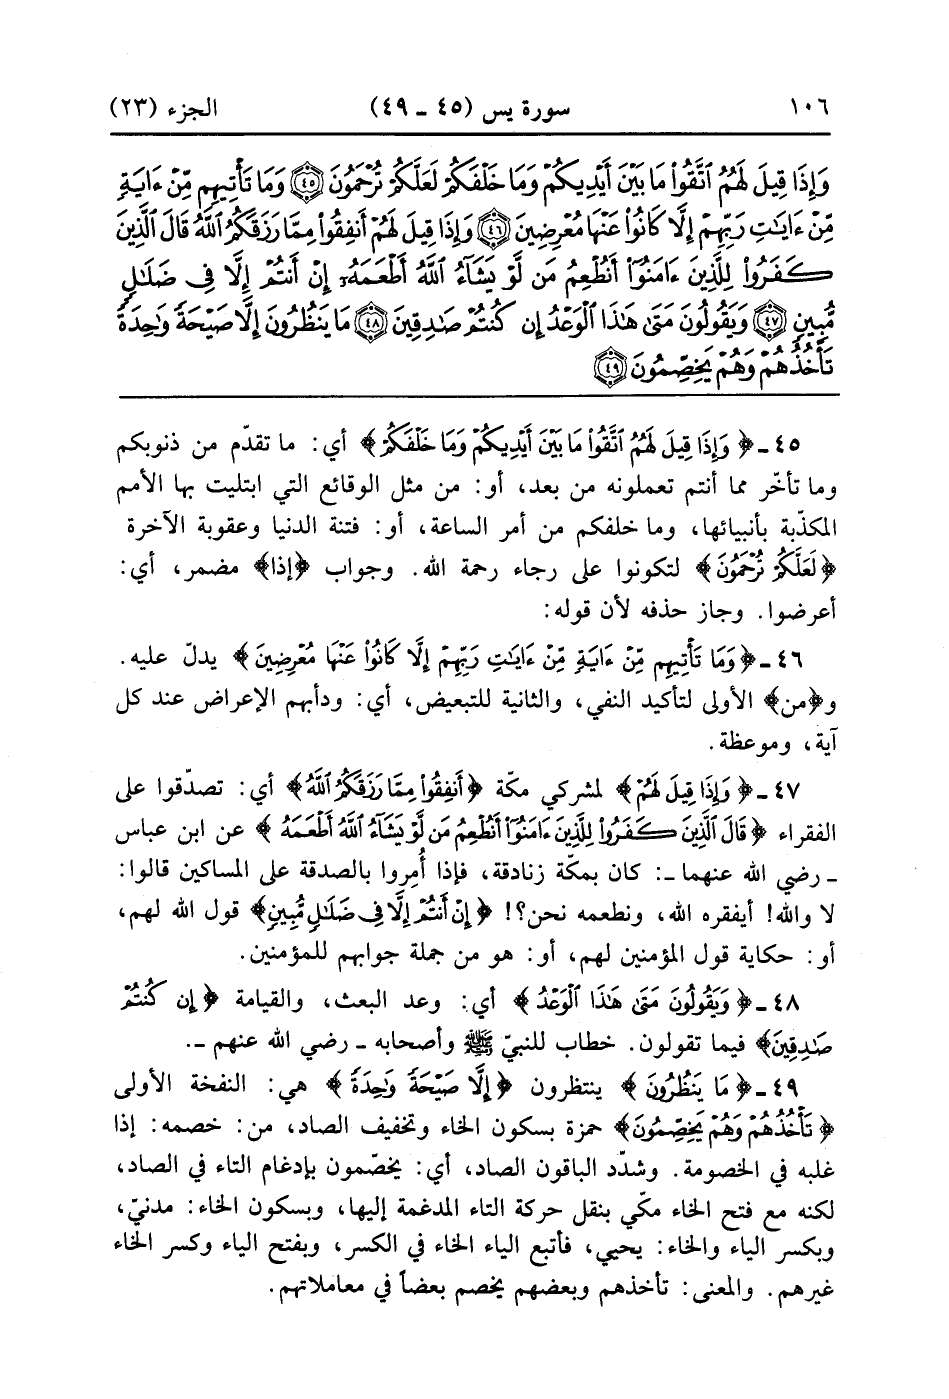 ١٠٦ سورة يس (٤٥ ـ ٤٩) الجزء (٢٣)
وَإِذَا قِيلَ لَهُمُ ٱتَّقُوا۟ مَا بَيْنَ أَيْدِيكُمْ وَمَا خَلْفَكُمْ لَعَلَّكُمْ تُرْحَمُونَ ﴿٤٥﴾ وَمَا تَأْتِيهِم مِّنْ ءَايَةٍ
مِّنْ ءَايَٰتِ رَبِّهِمْ إِلَّا كَانُوا۟ عَنْهَا مُعْرِضِينَ ﴿٤٦﴾ وَإِذَا قِيلَ لَهُمْ أَنفِقُوا۟ مِمَّا رَزَقَكُمُ ٱللَّهُ قَالَ ٱلَّذِينَ
كَفَرُوا۟ لِلَّذِينَ ءَامَنُوٓا۟ أَنُطْعِمُ مَن لَّوْ يَشَآءُ ٱللَّهُ أَطْعَمَهُۥٓ إِنْ أَنتُمْ إِلَّا فِى ضَلَٰلٍ
مُّبِينٍ ﴿٤٧﴾ وَيَقُولُونَ مَتَىٰ هَٰذَا ٱلْوَعْدُ إِن كُنتُمْ صَٰدِقِينَ ﴿٤٨﴾ مَا يَنظُرُونَ إِلَّا صَيْحَةً وَٰحِدَةً
تَأْخُذُهُمْ وَهُمْ يَخِصِّمُونَ ﴿٤٩﴾
٤٥ ـ ﴿وَإِذَا قِيلَ لَهُمُ ٱتَّقُوا۟ مَا بَيْنَ أَيْدِيكُمْ وَمَا خَلْفَكُمْ﴾ أي: ما تقدّم من ذنوبكم
وما تأخّر مما أنتم تعملونه من بعد، أو: من مثل الوقائع التي ابتليت بها الأمم
المكذّبة بأنبيائها، وما خلفكم من أمر الساعة، أو: فتنة الدنيا وعقوبة الآخرة
﴿لَعَلَّكُمْ تُرْحَمُونَ﴾ لتكونوا على رجاء رحمة الله. وجواب ﴿إذا﴾ مضمر، أي:
أعرضوا. وجاز حذفه لأن قوله:
٤٦ ـ ﴿وَمَا تَأْتِيهِم مِّنْ ءَايَةٍ مِّنْ ءَايَٰتِ رَبِّهِمْ إِلَّا كَانُوا۟ عَنْهَا مُعْرِضِينَ﴾ يدلّ عليه.
و﴿من﴾ الأولى لتأكيد النفي، والثانية للتبعيض، أي: ودأبهم الإعراض عند كل
آية، وموعظة.
٤٧ ـ ﴿وَإِذَا قِيلَ لَهُمْ﴾ لمشركي مكّة ﴿أَنفِقُوا۟ مِمَّا رَزَقَكُمُ ٱللَّهُ﴾ أي: تصدّقوا على
الفقراء ﴿قَالَ ٱلَّذِينَ كَفَرُوا۟ لِلَّذِينَ ءَامَنُوٓا۟ أَنُطْعِمُ مَن لَّوْ يَشَآءُ ٱللَّهُ أَطْعَمَهُ﴾ عن ابن عباس
ـ رضي الله عنهما ـ: كان بمكّة زنادقة، فإذا أُمِروا بالصدقة على المساكين قالوا:
لا والله! أيفقره الله، ونطعمه نحن؟! ﴿إِنْ أَنتُمْ إِلَّا فِى ضَلَٰلٍ مُّبِينٍ﴾ قول الله لهم،
أو: حكاية قول المؤمنين لهم، أو: هو من جملة جوابهم للمؤمنين.
٤٨ ـ ﴿وَيَقُولُونَ مَتَىٰ هَٰذَا ٱلْوَعْدُ﴾ أي: وعد البعث، والقيامة ﴿إِن كُنتُمْ
صَٰدِقِينَ﴾ فيما تقولون. خطاب للنبيّ ﷺ وأصحابه ـ رضي الله عنهم ـ.
٤٩ ـ ﴿مَا يَنظُرُونَ﴾ ينتظرون ﴿إِلَّا صَيْحَةً وَٰحِدَةً﴾ هي: النفخة الأولى
﴿تَأْخُذُهُمْ وَهُمْ يَخِصِّمُونَ﴾ حمزة بسكون الخاء وتخفيف الصاد، من: خصمه: إذا
غلبه في الخصومة. وشدّد الباقون الصاد، أي: يخصّمون بإدغام التاء في الصاد،
لكنه مع فتح الخاء مكّي بنقل حركة التاء المدغمة إليها، وبسكون الخاء: مدنيّ،
وبكسر الياء والخاء: يحيى، فأتبع الياء الخاء في الكسر، وبفتح الياء وكسر الخاء
غيرهم. والمعنى: تأخذهم وبعضهم يخصم بعضاً في معاملاتهم.